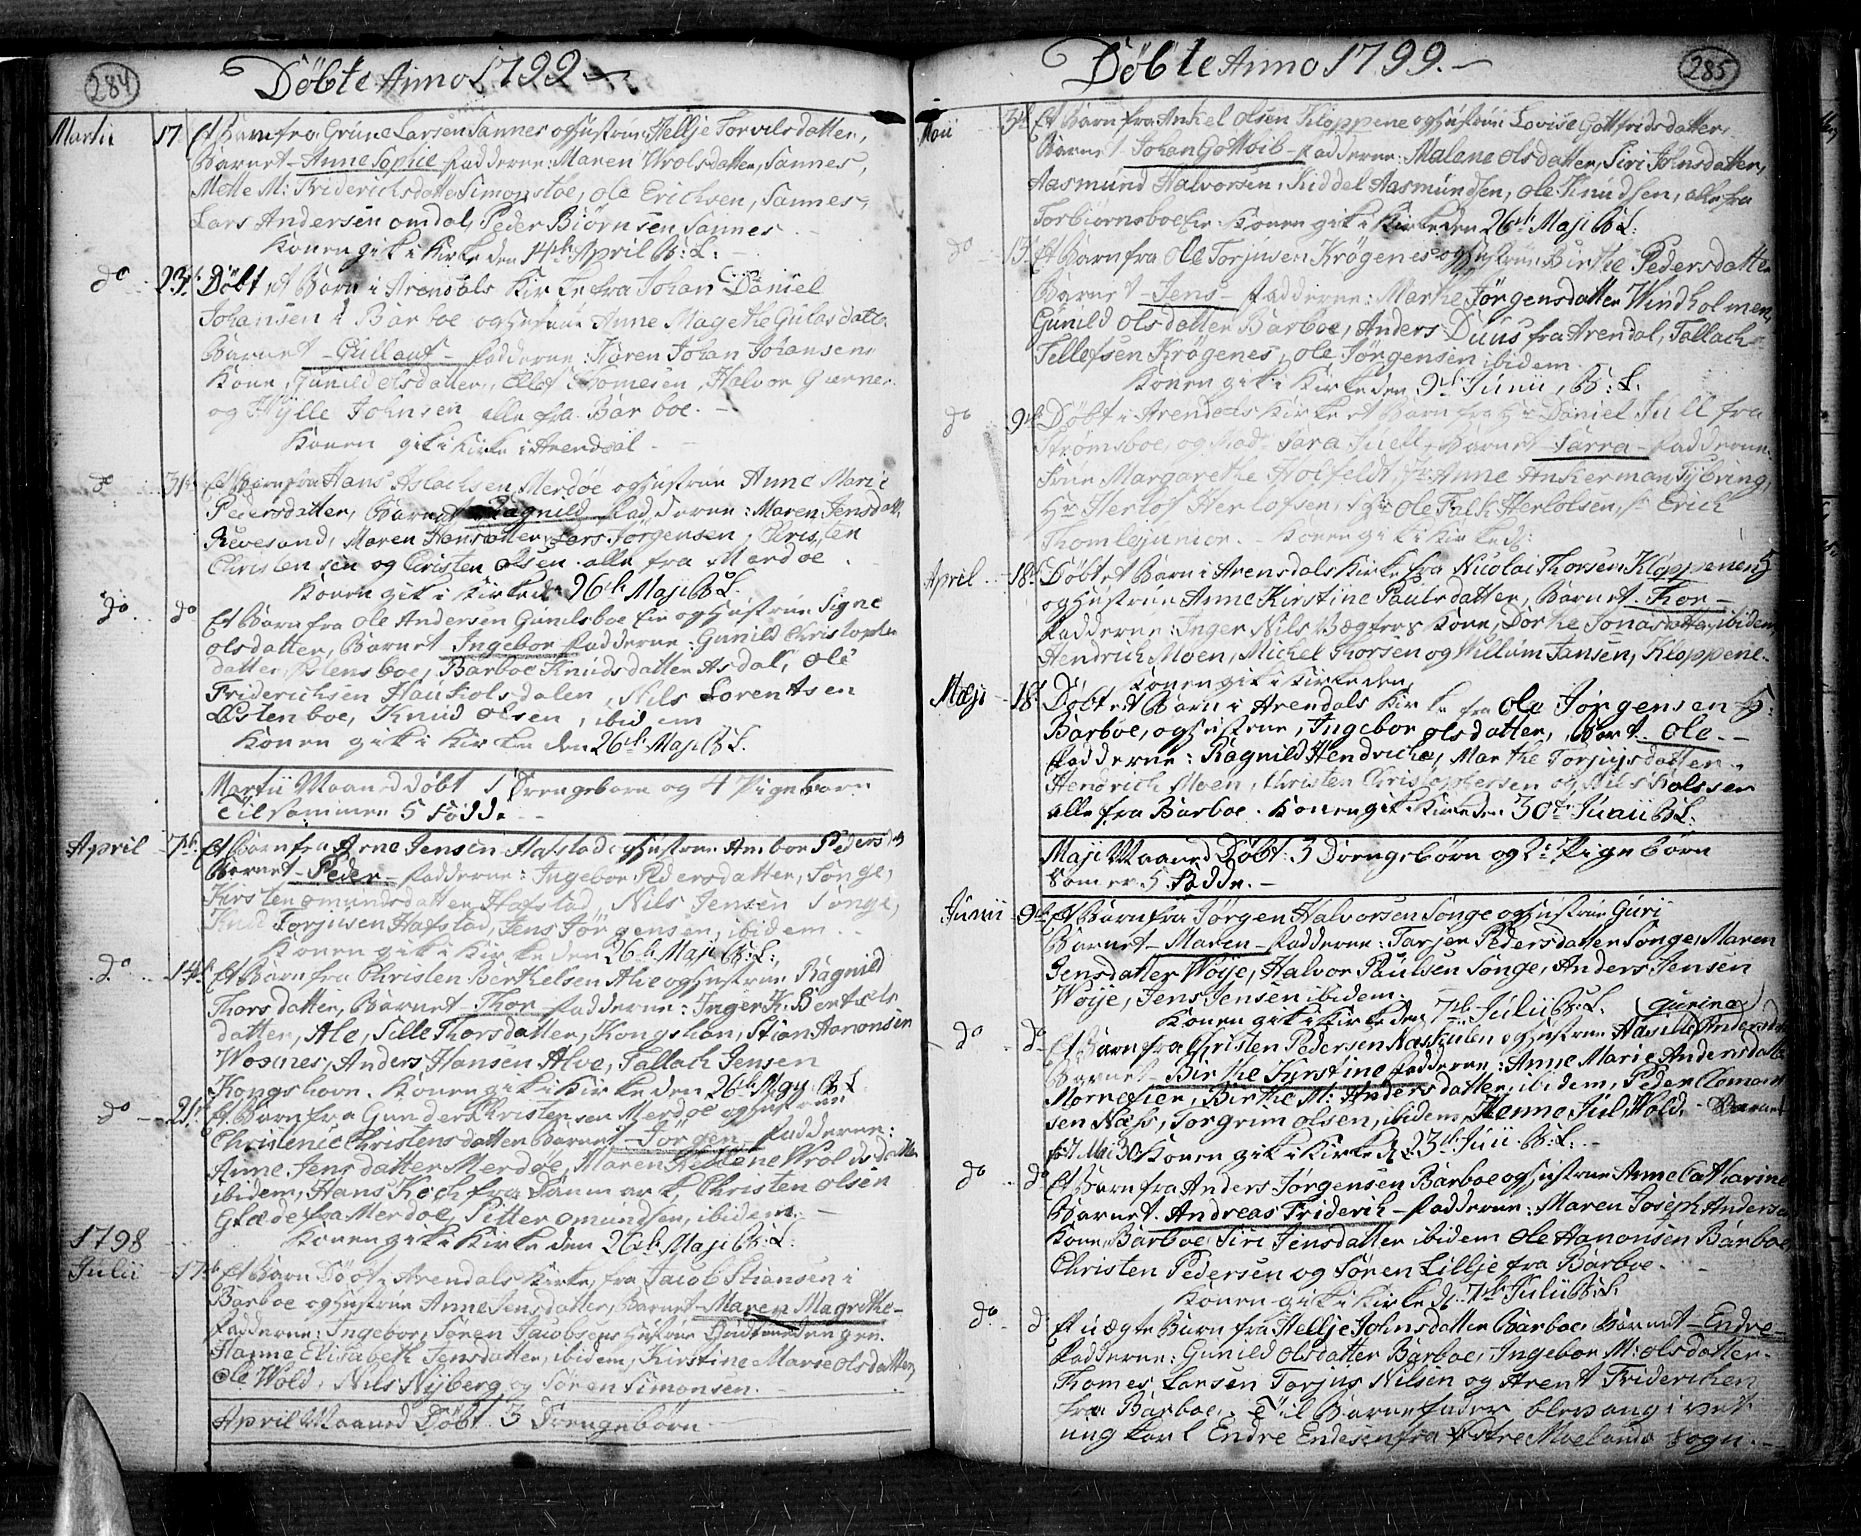 284
Döbte Anno 1799
Martii 17 Et Barn fra Grüne Larsen Sannes og hustrue Hellje Torvilsdatter,
Barnet - Anne Sophie - fadderne: Maren Wrolsdatter, Sannes,
Mette M: Friderichsdatter Simonstoe, Ole Erichsen, Sannes,
Lars Andersen omdal, Peder Biörnsen Sannes -
Konen gik i Kirke den 14de April B: L: -
do 23de Döbt et Barn i Arendals Kirke fra Johan Daniel
Johansen i Barboe og hustrue Anne Magethe Gulasdatter
Barnet - Gullauf - fadderne: Karen Johan Johansens
Kone, Gunild olsdatter, Ellef Thomesen, Halvor Guner
og Wylle Johnsen alle fra Barboe. -
Konen gik i Kirke i Arendal -
do 31te Et Barn fra Hans Aslachsen Merdöe og hustrue Anne Marie
Pedersdatter, Barnet Ragnild fadderne: Maren Jensdatt.
Revesand, Maren Hansdatter, Lars Jorgensen, Christen
Christensen og Christen olsen alle fra Merdoe.
Konen gik i Kirke de 26de Maji B: L.
do. do Et Barn fra Ole Andersen Gunilsboe Eie og hustrue Signe
olsdatter, Barnet Ingebor fadderne: Gunild Christophe
datter Østensboe, Barboe Knudsdatter Asdal, Ole
Friderichsen Haukolsdalen, Nils Lorentsen
Østenboe, Knud olsen, ibidem
Konen gik i Kirke den 26de Maji B: L.
Martii Maaned döbt 1 Drengebarn og 4 Pigebørn
Tilsammen 5 Födde -
April 7de Et Barn fra Arne Jensen Hafstad og hustrue Anbor Peders d
Barnet - Peder - fadderne: Ingebor Pedersdatter, Songe,
Kirsten omundsdatter Hafstad, Nils Jensen Songe,
Knud Torjusen Hafstad, Jens Jörgensen, ibidem. -
Konen gik i Kirke den 26de Maji B: L:,
do 14de Et Barn fra Christen Berthelsen Alve og hustrue Ragnild
Thorsdatter, Barnet Thor fadderne: Inger K: Bertels
datter, Ale, Sille Thorsdatter, Kongshan, Stian Aanonsen
Woxnes, Anders Hansen Alve, Tallach Jensen
Kongshavn. Konen gik i Kirke den 26de May B: L
do - 21de Et Barn fra Gunder Christensen Merdöe og hustrue
Christence Christensdatter Barnet Jörgen fadderne:
Anne Jensdatter Merdöe, Maren Hellene Wroldsdatter
ibidem, Hans Koch fra Danmark, Christen olsen
Glæde fra Merdoe, Pitter omundsen, ibidem. -
Konen gik i Kirke den 26de Maji B: L:
1798
Julii 17de Et Barn Döbt i Arendals Kirke, fra Jacob Stiansen i
Barboe og hustrue Anne Jensdatter, Barnet - Maren Magrethe -
fadderne: Ingebor, Sören Jacobsens hustrue
Hanne Elisabeth Jensdatter, ibidem, Kirstine Marie olsdatter,
Ole Wold, Nils Nyberg og Sören Simonsen. -
April Maaned Döbt 3 Drengebörn
285
Döbte Anno 1799. -
Maii 5te Et Barn fra Ankel olsen Kloppene og hustrue Lovise Gottfridsdatter,
Barnet Johan Gottlib - fadderne: Malene olsdatter, Siri Johnsdatter,
Aasmund Halvorsen, Kiddel Aasmundsen, Ole Knudsen, alle fra
Torbiörnsboe Eie - Konen gik i Kirke den 26de Maji B: L:
do 13. Et Barn fra Ole Torjusen Krögenes og hustrue Birthe Pedersdatter
Barnet - Jens - fadderne: Marthe Jörgensdatter Windholmen,
Gunild olsdatter Barboe, Anders Duus fra Arendal, Tallach
Tellefsen Krögenes, Ole Jörgensen ibidem
Konen gik i Kirke den 9de Junii, B: L:
do 9de Döbt i Arendals Kirke et Barn fra Hr Daniel Juell fra
Strömsboe, og Mad: Sara Juell, Barnet Sarra - fadderne:
Frue Margarethe Hoefeldt, Anne Ankerman Tybring,
Hr Herlof Herlofsen, Sgr Ole Falk Herlofsen, Erich
Thomle junior - Konen gik i Kirke d:
April - 18de Döbt et Barn i Arensdals Kirke fra Nicolai Thorsen Kloppene
og hustrue Anne Kirstine Paulsdatter, Barnet Thor -
fadderne: Inger Nils Bøgters Kone, Dorthe Jonasdatter ibidem,
Hendrich Moen, Michel Thorsen og Willum Jansen, Kloppene.
Konen gik i Kirke den,
Maji 18de Döbt et Barn i Arendals Kirke fra Ole Jörgensen
Barboe, og hustrue, Ingebor olsdatter, Barnt. Ole -
fadderne: Ragnild Hendriche, Marthe Torjusdatter,
Hendrich Moen, Christen Christophersen og Nils Nolssen
alle fra Barboe. Konen gik i Kirke den 30te Junii B: L:
Maji Maaned Döbt 3 Drengebörn og 2: Pigebörn
Som er 5 Födde. -
Junii 9de Et Barn fra Jörgen Halvorsen Songe og hustrue Guri
Barnet - Maren - fadderne: Tarjer Pedersdatter Songe, Maren
Jensdatter Woije, Halvor Paulsen Songe, Anders Jensen
Woije, Jens Jensen ibidem.
Konen gik i Kirke den 7de Julii B: L. (Gurine)
do do Et Barn fra Christen Pedersen Naskilen og hustrue Aasille Andersdat
Barnet - Birthe Kirstine fadderne: Anne Marie Andersdatter
Mörnefier, Birthe M: Andersdatter, ibidem, Peder Clomen
sen Næs, Torgrim olsen, ibidem, Henne Jul Wold. - Barnet
f. 7 Mai 30 Konen gik i Kirke d. 23de Juii B: L:. -
do do Et Barn fra Anders Jörgensen Barboe og hustrue Anne Catharine
Barnet. Andreas Friderich - fadderne: Maren Joseph Andersens
Kone, Barboe, Siri Jensdatter ibidem Ole Hanonsen Barboe
Christen Pedersen og Sören Lillje fra Barboe -
Konen gik i Kirke d. 7de Julii B: L.
do. d Et uægte Barn fra Hellje Johnsdatter Barboe, Barnet - Endre -
fadderne: Gunild olsdatter Barboe, Ingebor M: olsdatter -
Thomes Larsen Torjus Nilsen og Arent Fridericksen
fra Barboe. - Til Barnefader blev angivet
ung karl Endre Endresen fra Østre Moelands Sogn. -